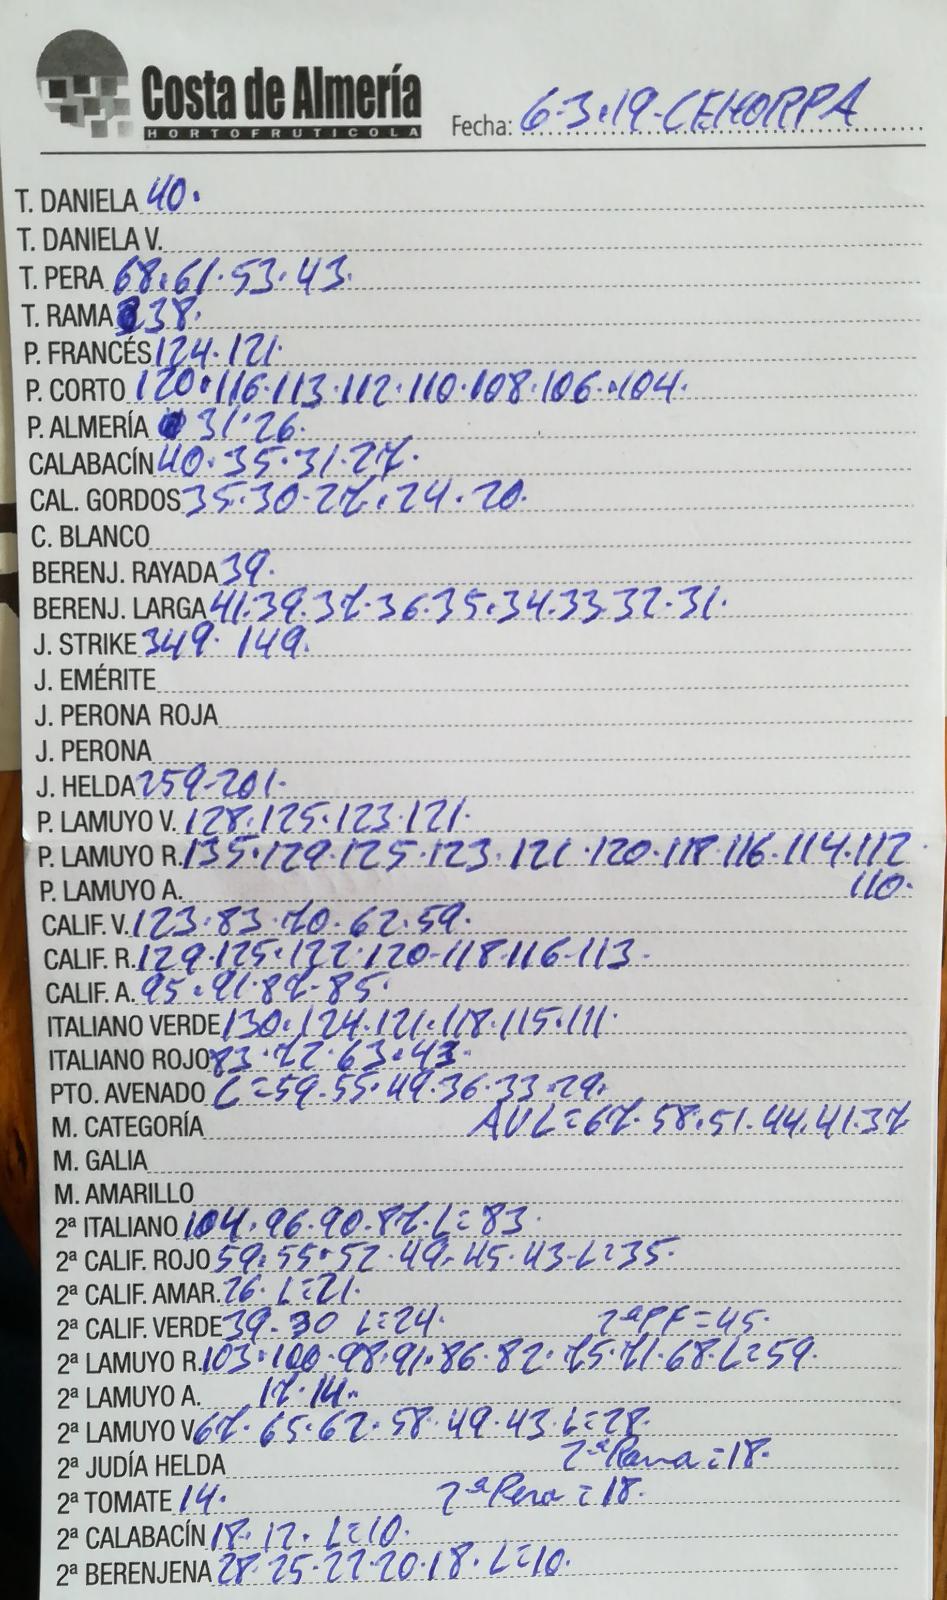 Costa de Almería
HORTOFRUTICOLA
Fecha: 6-3-19-CEHORPA
T. DANIELA 40.
T. DANIELA V.
T. PERA 68.61.53.43.
T. RAMA 38.
P. FRANCÉS 124.121.
P. CORTO 120.116.113.112.110.108.106.104.
P. ALMERÍA 31.26.
CALABACÍN 40.35.31.27.
CAL. GORDOS 35.30.27.24.20.
C. BLANCO
BERENJ. RAYADA 39.
BERENJ. LARGA 41.39.37.36.35.34.33.32.31.
J. STRIKE 349. 149.
J. EMÉRITE
J. PERONA ROJA
J. PERONA
J. HELDA 259-201.
P. LAMUYO V. 128.125.123.121.
P. LAMUYO R. 135.129.125.123.121.120.118.116.114.112.
P. LAMUYO A. 110.
CALIF. V. 123.83.70.62.59.
CALIF. R. 129.125.122.120-118.116-113.
CALIF. A. 95.91.87-85.
ITALIANO VERDE 130.124.121.118.115.111.
ITALIANO ROJO 83.72.63.43.
PTO. AVENADO L=59.55.49.36.33.29.
M. CATEGORÍA AVL=67.58.51.44.41.37
M. GALIA
M. AMARILLO
2ª ITALIANO 104.96.90.87.L=83.
2ª CALIF. ROJO 59.55.52.49.45.43-L=35.
2ª CALIF. AMAR. 26. L=21.
2ª CALIF. VERDE 39-30 L=24. 2ªPF=45.
2ª LAMUYO R. 103.100-98.91.86.82.75.71.68.L=59.
2ª LAMUYO A. 17.14.
2ª LAMUYO V 67.65.62.58.49.43.L=28.
2ª JUDÍA HELDA 2ªRama=18.
2ª TOMATE 14. 2ªPera=18.
2ª CALABACÍN 18.12. L=10.
2ª BERENJENA 28.25.22.20.18.L=10.